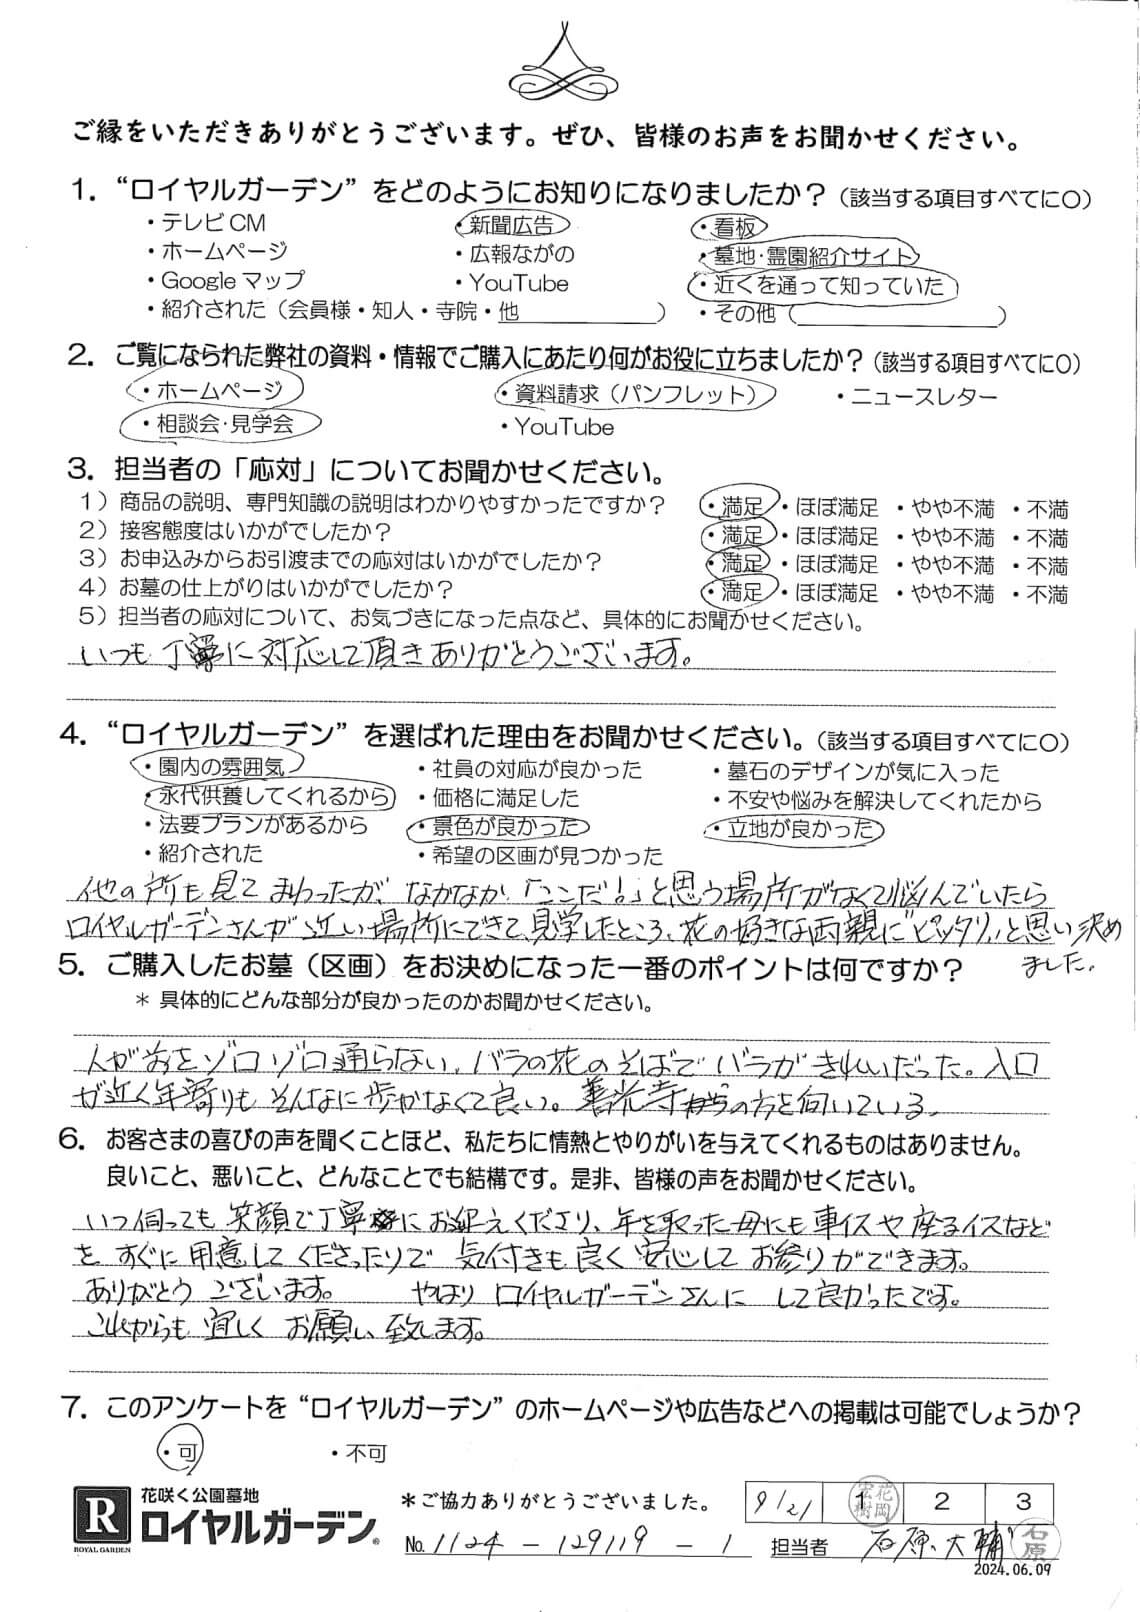 ご縁をいただきありがとうございます。ぜひ、皆様のお声をお聞かせください。
1. “ロイヤルガーデン” をどのようにお知りになりましたか？（該当する項目すべてに〇）
・テレビCM ・新聞広告 ・看板
・ホームページ ・広報ながの ・墓地・霊園紹介サイト
・Google マップ ・YouTube ・近くを通って知っていた
・紹介された（会員様・知人・寺院・他 ） ・その他（ ）
2. ご覧になられた弊社の資料・情報でご購入にあたり何がお役に立ちましたか？（該当する項目すべてに〇）
・ホームページ ・資料請求（パンフレット） ・ニュースレター
・相談会・見学会 ・YouTube
3. 担当者の「応対」についてお聞かせください。
1）商品の説明、専門知識の説明はわかりやすかったですか？ ・満足 ・ほぼ満足 ・やや不満 ・不満
2）接客態度はいかがでしたか？ ・満足 ・ほぼ満足 ・やや不満 ・不満
3）お申込みからお引渡までの応対はいかがでしたか？ ・満足 ・ほぼ満足 ・やや不満 ・不満
4）お墓の仕上がりはいかがでしたか？ ・満足 ・ほぼ満足 ・やや不満 ・不満
5）担当者の応対について、お気づきになった点など、具体的にお聞かせください。
いつも丁寧に対応して頂きありがとうございます。
4. “ロイヤルガーデン” を選ばれた理由をお聞かせください。（該当する項目すべてに〇）
・園内の雰囲気 ・社員の対応が良かった ・墓石のデザインが気に入った
・永代供養してくれるから ・価格に満足した ・不安や悩みを解決してくれたから
・法要プランがあるから ・景色が良かった ・立地が良かった
・紹介された ・希望の区画が見つかった
他の所も見てまわったが、なかなか「ここだ！」と思う場所がなくて悩んでいたら
ロイヤルガーデンさんが近い場所にできて、見学したところ、花の好きな両親に“ピッタリ”と思い決め
ました。
5. ご購入したお墓（区画）をお決めになった一番のポイントは何ですか？
＊ 具体的にどんな部分が良かったのかお聞かせください。
人が前をゾロゾロ通らない。バラの花のそばでバラがきれいだった。入口
が近く年寄りもそんなに歩かなくて良い。善光寺の方を向いている。
6. お客さまの喜びの声を聞くことほど、私たちに情熱とやりがいを与えてくれるものはありません。
良いこと、悪いこと、どんなことでも結構です。是非、皆様の声をお聞かせください。
いつ伺っても笑顔で丁寧にお迎えくださり、年を取った母にも車イスや座るイスなど
をすぐに用意してくださったりで気付きも良く安心してお参りができます。
ありがとうございます。 やはりロイヤルガーデンさんにして良かったです。
これからも宜しくお願い致します。
7. このアンケートを “ロイヤルガーデン” のホームページや広告などへの掲載は可能でしょうか？
・可 ・不可
R
ROYAL GARDEN
花咲く公園墓地
ロイヤルガーデン®
＊ご協力ありがとうございました。
9/21 1 2 3
花岡宏樹
No. 1124 - 129119 - 1 担当者 石原大輔
石原
2024.06.09